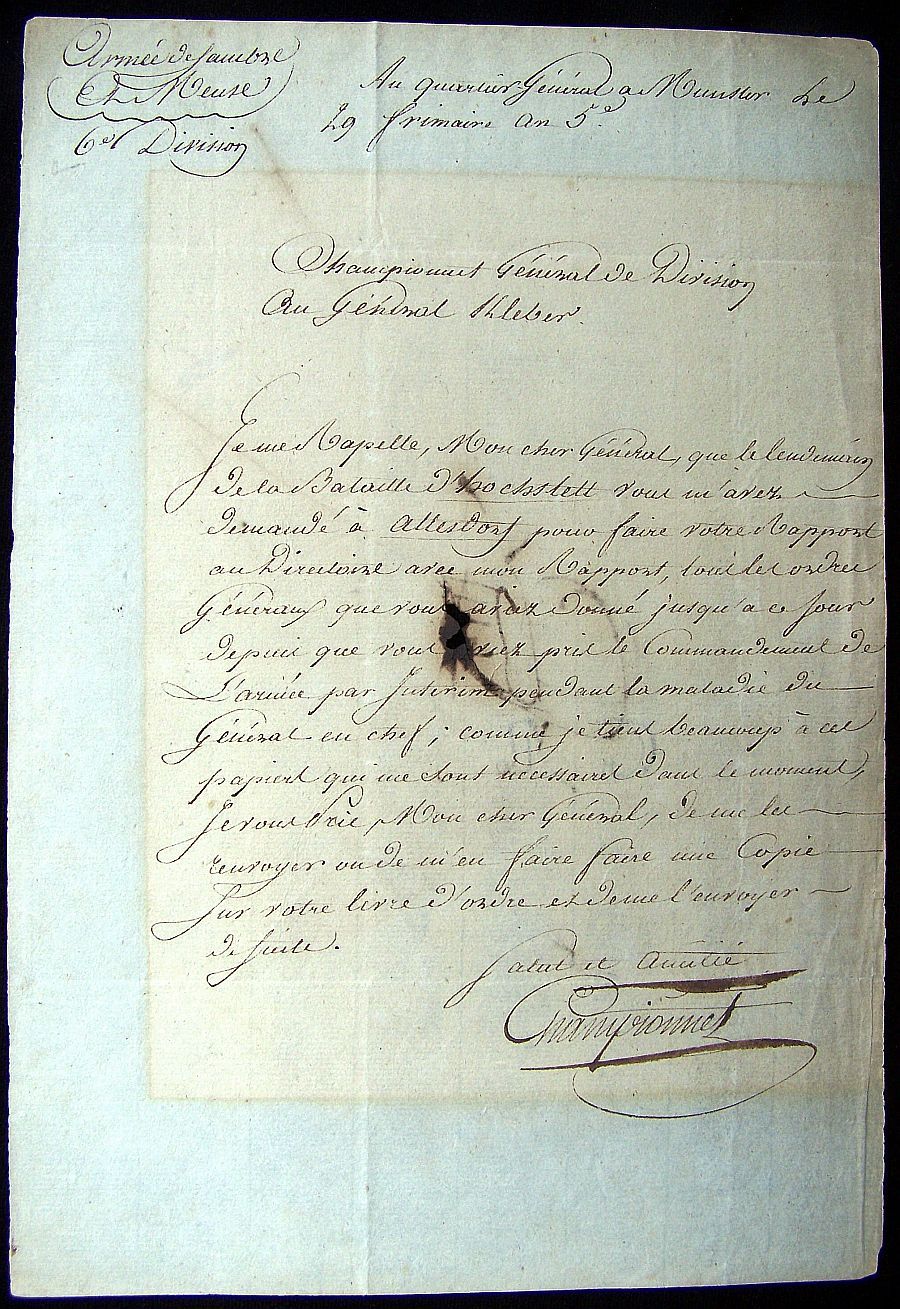 Armée de Sambre
Et Meuse
6e Division
Au quartier Général a Munster Le
29 frimaire An 5e
Championnet Général de Division
Au Général Kleber.
Je me Rapelle, Mon cher Général, que le lendemain
de la Bataille d'hochstett vous m'avez
demandé à Allesdorf pour faire votre Rapport
au Directoire avec mon Rapport, tous les ordres
Généraux que vous aviez donné jusqu'a ce Jour
depuis que vous aviez pris le Commandement de
L'armée par Interim pendant la maladie du
Général en chef; comme je tiens beaucoup à ces
papiers qui me sont necessaires dans le moment,
Je vous Prie, Mon cher Général, de me les
renvoyer ou de m'en faire faire une Copie
Sur votre livre d'ordre et de me l'envoyer
de suite.
Salut et Amitié
Championnet